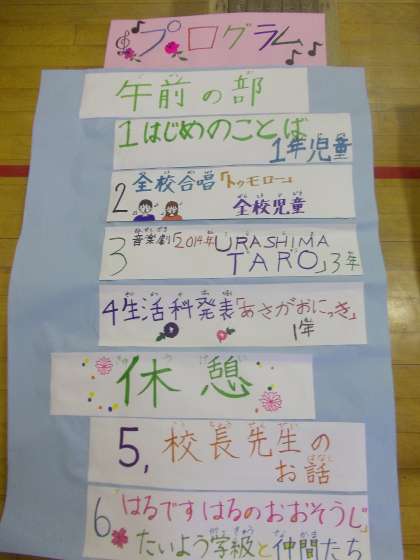 プログラム
午前の部
1はじめのことば
1年児童
2 全校合唱「トゥモロー」
全校児童
3 音楽劇「2014年URASHIMA
TARO」3年
4生活科発表「あさがおにっき」
1年
休憩
5,校長先生の
お話
6「はるですはるのおおそうじ」
たいよう学級と仲間たち